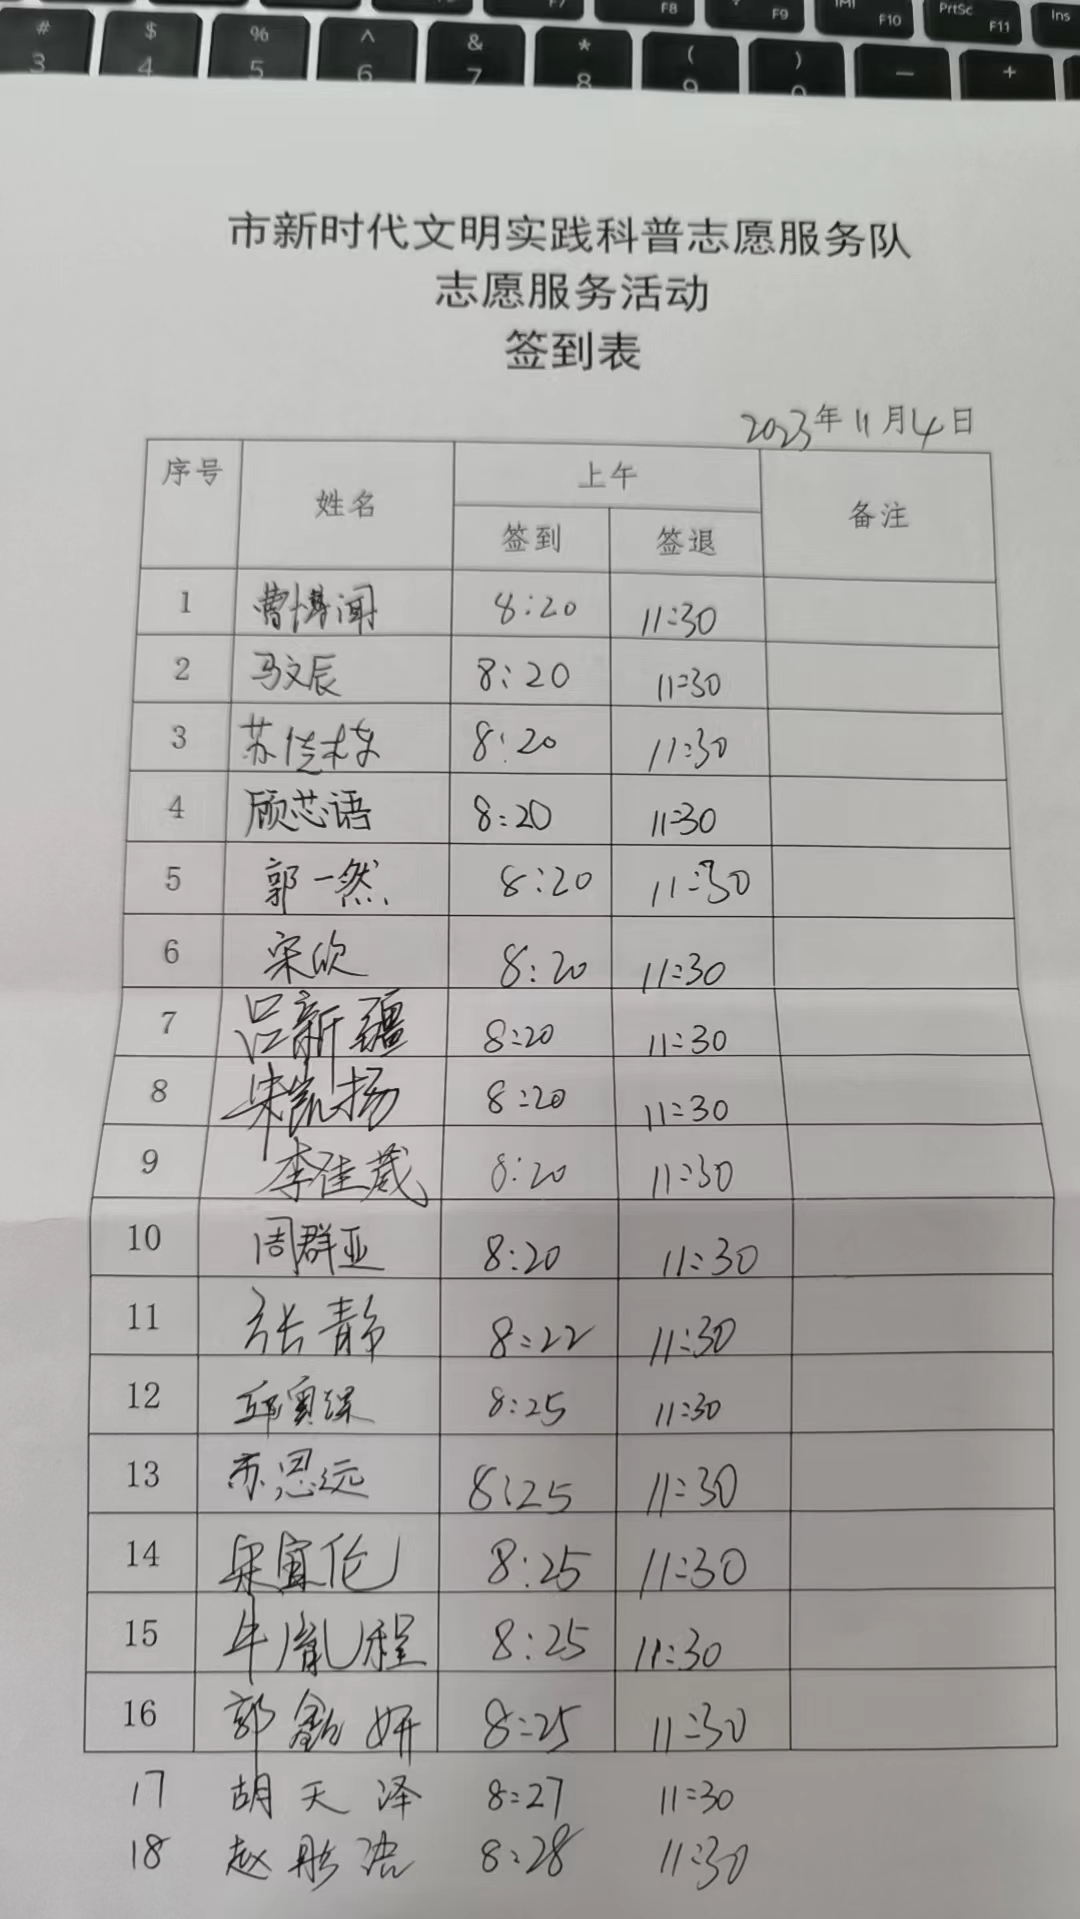 # $ % ^ & * ( ) — +
3 4 5 6 7 8 9 0
F7 F8 F9 F10 PrtSc F11 Ins
市新时代文明实践科普志愿服务队
志愿服务活动
签到表
2023年11月4日
序号 姓名 上午 备注
签到 签退
1 曹博闻 8:20 11:30
2 马文辰 8:20 11:30
3 苏 8:20 11:30
4 顾芯语 8:20 11:30
5 郭一然 8:20 11:30
6 宋欣 8:20 11:30
7 吕新疆 8:20 11:30
8 朱凯扬 8:20 11:30
9 李佳葳 8:20 11:30
10 周群亚 8:20 11:30
11 张静 8:22 11:30
12 邱 8:25 11:30
13 苏思远 8:25 11:30
14 宜伦 8:25 11:30
15 牛胤程 8:25 11:30
16 郭 妍 8:25 11:30
17 胡天泽 8:27 11:30
18 赵 浩 8:28 11:30